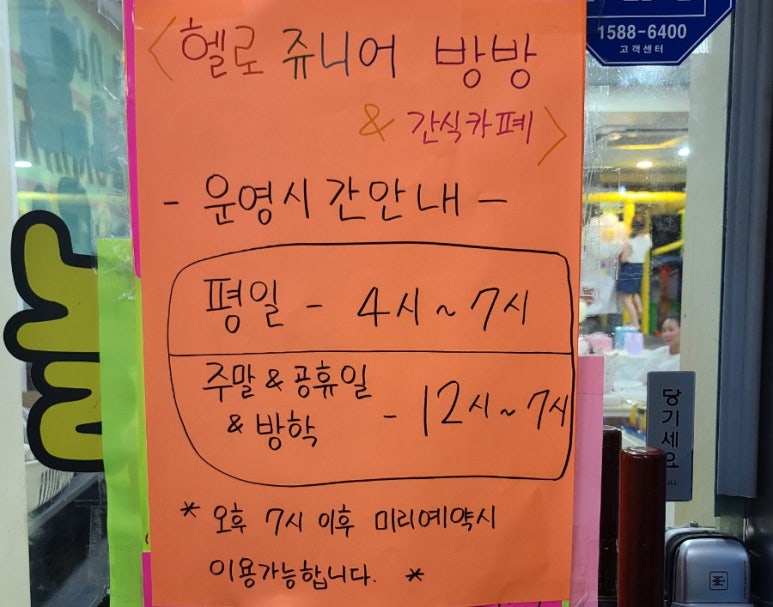 <헬로 쥬니어 방방
& 간식카페>
- 운영시간안내 -
평일 - 4시~7시
주말 & 공휴일
& 방학 - 12시~7시
* 오후 7시 이후 미리예약시
이용가능합니다. *
1588-6400
고객센터
당기세요